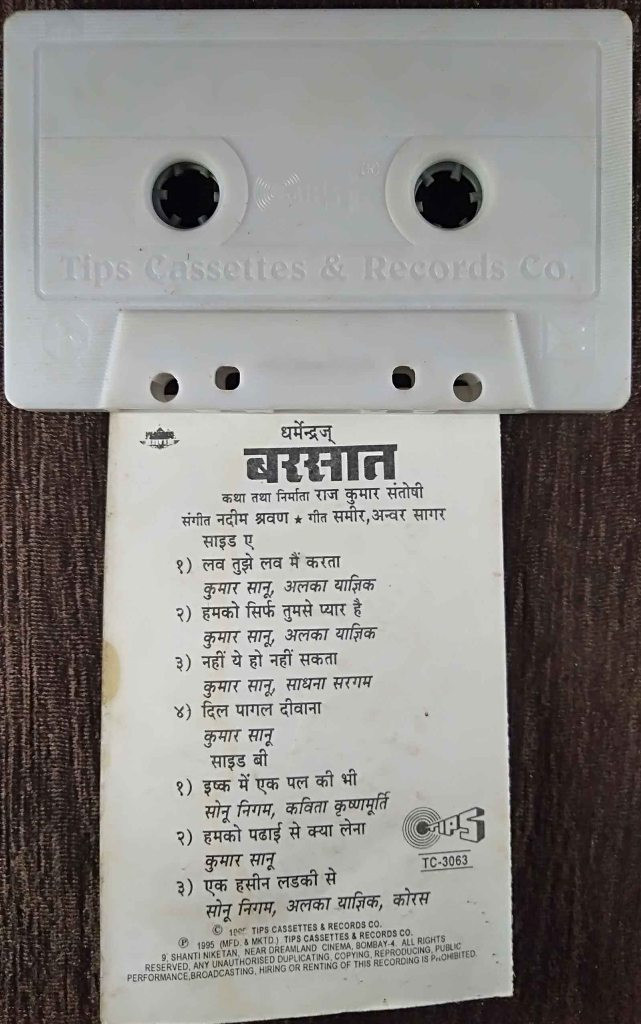 Tips Cassettes & Records Co.
धर्मेन्द्रज्
बरसात
कथा तथा निर्माता राज कुमार संतोषी
संगीत नदीम श्रवण ★ गीत समीर,अन्वर सागर
साइड ए
१) लव तुझे लव मैं करता
कुमार सानू, अलका याज्ञिक
२) हमको सिर्फ तुमसे प्यार है
कुमार सानू, अलका याज्ञिक
३) नहीं ये हो नहीं सकता
कुमार सानू, साधना सरगम
४) दिल पागल दीवाना
कुमार सानू
साइड बी
१) इष्क में एक पल की भी
सोनू निगम, कविता कृष्णमूर्ति
२) हमको पढाई से क्या लेना
कुमार सानू
TIPS
TC-3063
३) एक हसीन लडकी से
सोनू निगम, अलका याज्ञिक, कोरस
© TIPS CASSETTES & RECORDS CO.
℗ 1995 (MFD. & MKTD.) TIPS CASSETTES & RECORDS CO.
9, SHANTI NIKETAN, NEAR DREAMLAND CINEMA, BOMBAY-4. ALL RIGHTS
RESERVED, ANY UNAUTHORISED DUPLICATING, COPYING, REPRODUCING, PUBLIC
PERFORMANCE,BROADCASTING, HIRING OR RENTING OF THIS RECORDING IS PROHIBITED.